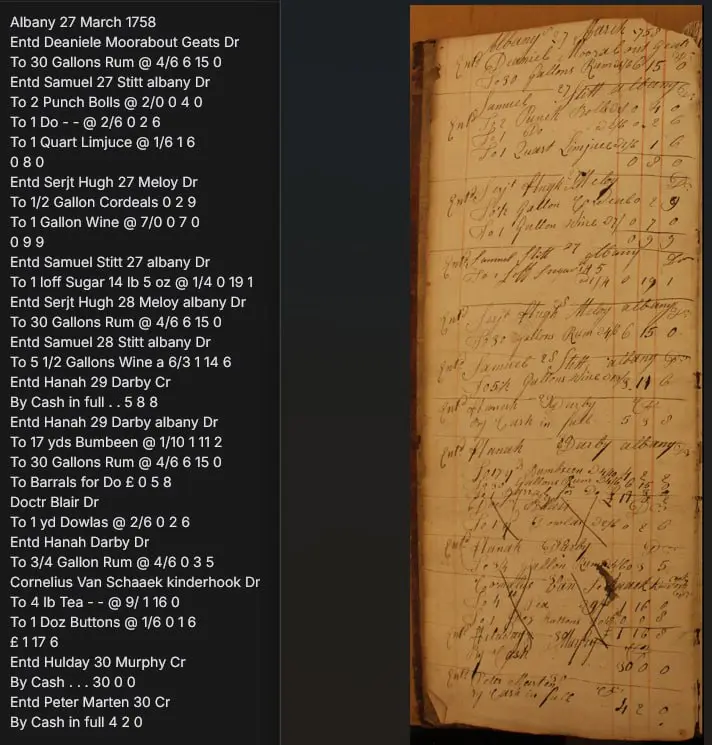 Albany 27 March 1758
Entd Deaniele Moorabout Geats Dr
To 30 Gallons Rum @ 4/6 6 15 0
Entd Samuel 27 Stitt albany Dr
To 2 Punch Bolls @ 2/0 0 4 0
To 1 Do - - @ 2/6 0 2 6
To 1 Quart Limjuce @ 1/6 1 6
0 8 0
Entd Serjt Hugh 27 Meloy Dr
To 1/2 Gallon Cordeals 0 2 9
To 1 Gallon Wine @ 7/0 0 7 0
0 9 9
Entd Samuel Stitt 27 albany Dr
To 1 loff Sugar 14 lb 5 oz @ 1/4 0 19 1
Entd Serjt Hugh 28 Meloy albany Dr
To 30 Gallons Rum @ 4/6 6 15 0
Entd Samuel 28 Stitt albany Dr
To 5 1/2 Gallons Wine a 6/3 1 14 6
Entd Hanah 29 Darby Cr
By Cash in full . . 5 8 8
Entd Hanah 29 Darby albany Dr
To 17 yds Bumbeen @ 1/10 1 11 2
To 30 Gallons Rum @ 4/6 6 15 0
To Barrals for Do £ 0 5 8
Doctr Blair Dr
To 1 yd Dowlas @ 2/6 0 2 6
Entd Hanah Darby Dr
To 3/4 Gallon Rum @ 4/6 0 3 5
Cornelius Van Schaaek kinderhook Dr
To 4 lb Tea - - @ 9/ 1 16 0
To 1 Doz Buttons @ 1/6 0 1 6
£ 1 17 6
Entd Hulday 30 Murphy Cr
By Cash . . . 30 0 0
Entd Peter Marten 30 Cr
By Cash in full 4 2 0
Albany 27 March 758
Entd Deaniel Moorabout Geats
To 30 Gallons Rum 6 15 0
Samuel 27 Stitt albany Dr
Entd To 2 Punch 0 4 0
To 1 Do 0 2 6
To 1 Quart Limjuce 1 6
0 8 0
Entd Serjt Hugh Meloy Dr
To ½ Gallon 2 9
To 1 Gallon Wine 0 7 0
0 9 9
Entd Samuel Stitt 27 albany Dr
To 1 Loff
0 19 1
Entd Serjt Hugh 28 Meloy albany
To 30 Gallons Rum 6 15 0
Entd Samuel 28 Stitt albany
To 5½ Gallons Wine 6
Entd Hanah Darby
By Cash in full 5 8
Entd Hanah Darby albany
To 17 yd
To 30 Gallons Rum
To 1 Dowlas 0 2 6
Entd Hanah Darby
To ¾ Gallon 3 5
Cornelius Van
To 4 Tea 1 16 0
To 1 Buttons
By Cash
30 0 0
Entd Peter Marten
By Cash in full
4 2 0